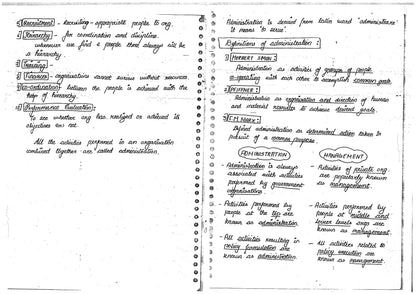 Recruitment - Recruiting appropriate people to org.
Hierarchy - for coordination and discipline.
whenever we find 2 people there always will be
a hierarchy.
Training
Finances - organisations cannot survive without resources.
Co-ordination between the people is achieved with the
help of hierarchy.
Performance Evaluation:
To see whether org. has realized or achieved its
objectives or not.
All the activities performed in an organisation
combined together are called administration.
Administration is derived from latin word 'administrare'
It means 'to serve'.
Definitions of administration:
1) HERBERT SIMON:
Administration as activities of groups of people
co-operating with each other to accomplish common goals.
2) PFIFFNER:
Administration as organisation and direction of human
and material resources to achieve desired goals.
3) F.M. MARX:
Defined administration as determined action taken in
pursuit of a common purpose.
ADMINISTRATION
- Administration is always
associated with activities
performed by government
organisations
- Activities performed by
people at the top are
known as administration.
- All activities resulting in
policy formulation are
known as administration.
MANAGEMENT
- Activities of private org.
are popularly known
as management.
- Activities performed by
people at middle and
lower levels are
known as management.
- All activities related to
policy execution are
known as management.